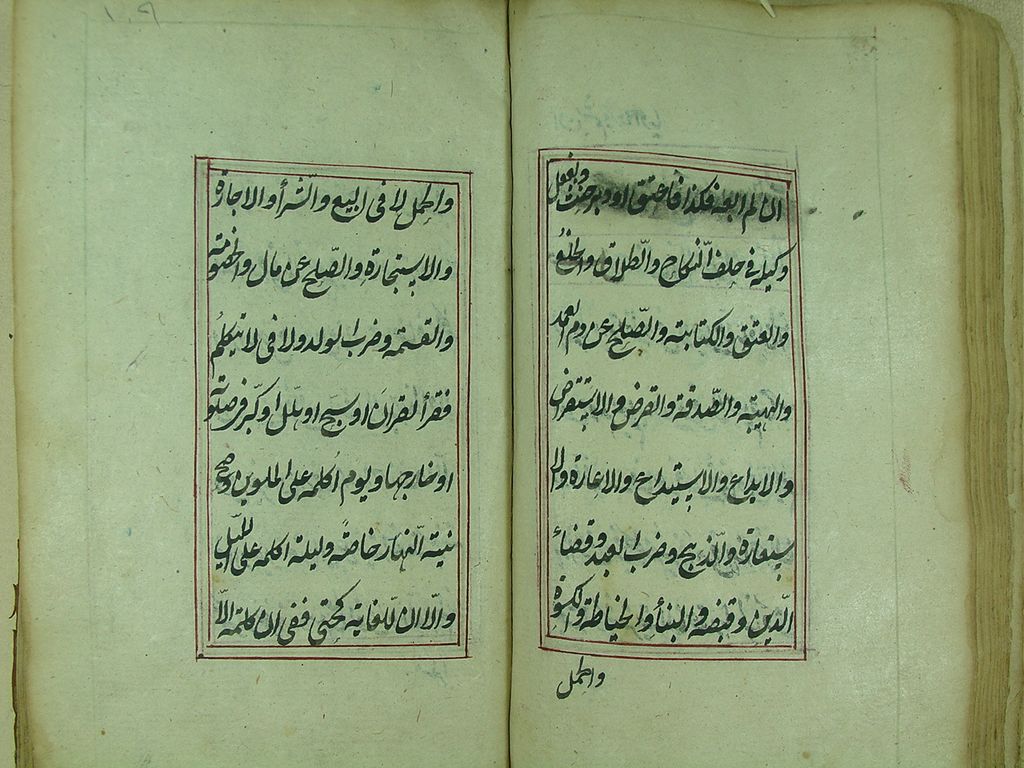 ان لم ابعه فكذا فاعتق او دبر حنث وبفعل
وكيله في حلف النكاح والطلاق والخلع
والعتق والكتابة والصلح عن دم العمد
والهبة والصدقة والقرض والاستقراض
والايداع والاستيداع والاعارة والا
ستعارة والذبح وضرب العبد وقضاء
الدين وقبضه والبنأ والخياطة والكسوة
والحمل
والحمل لا في البيع والشرأ والاجازة
والاستجارة والصلح عن مال والخصومة
والقسمة وضرب الولد ولا في لا يتكلم
فقرأ القرآن او سبح او هلل او كبر في صلوته
او خارجها ويوم اكلمه على الملوين وصح
نية النهار خاصة وليلة اكلمه على الليل
والا ان للغاية كحتى ففي ان كلمته الا
١٠٩